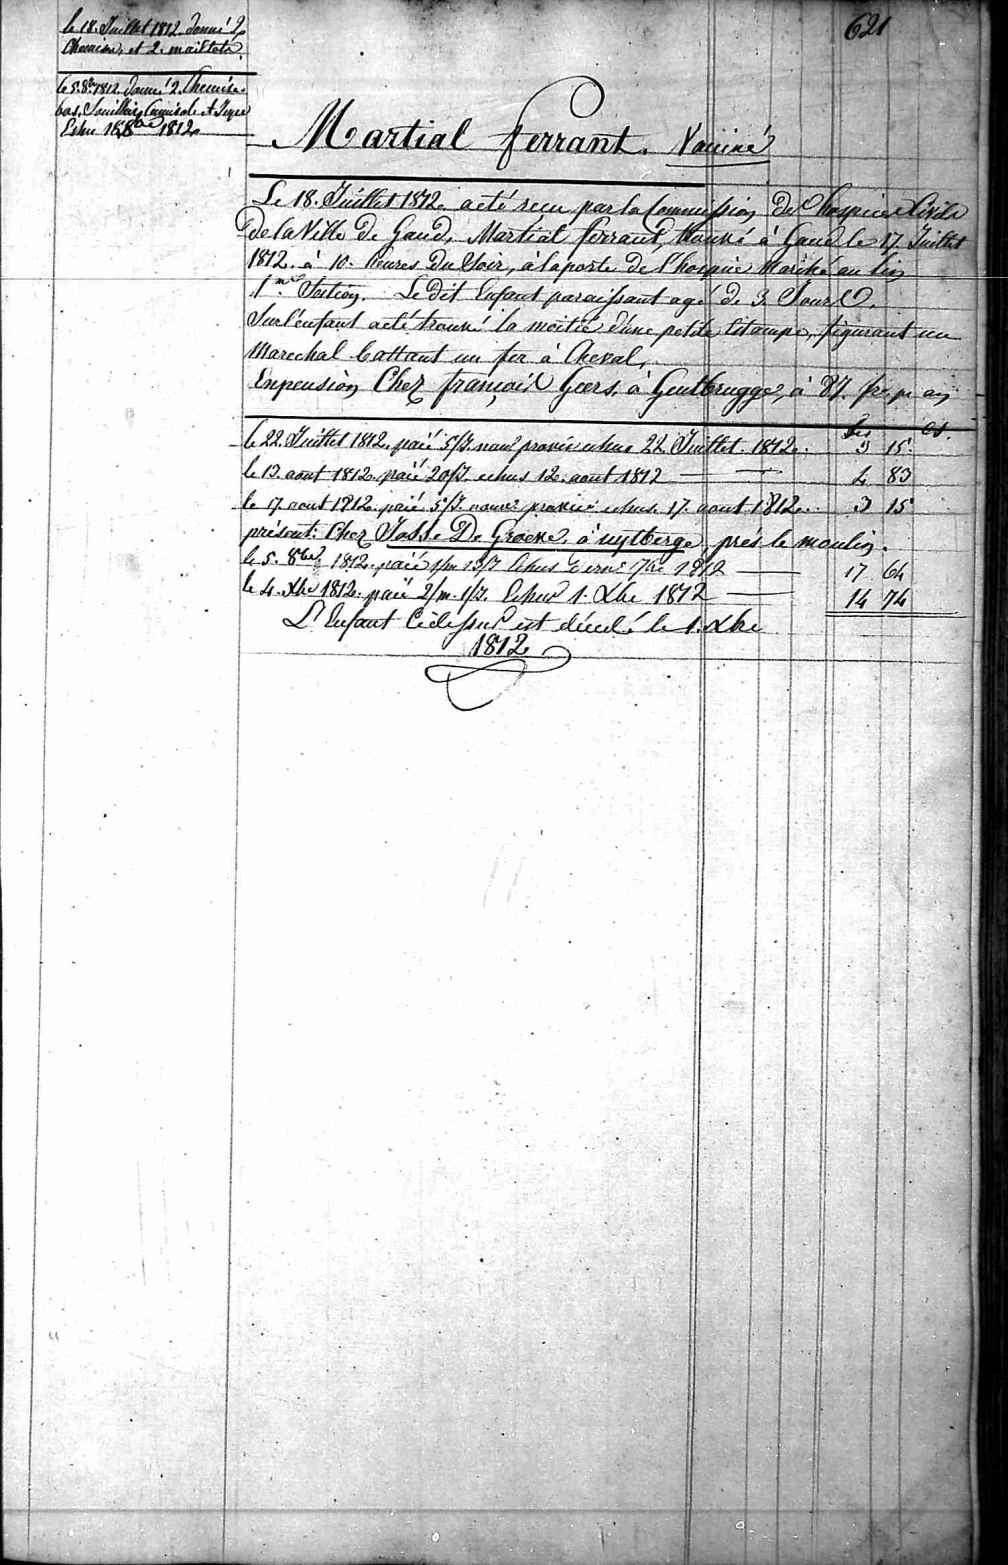 621
le 18. Juillet 1812. donné 2
Chemises, et 2. maillots.
le 5. 8bre 1812. donné 2. Chemises
bas, Souilliers Camisole et Juppe
Echu 16 8bre 1812
Martial ferrant. Vacciné
Le 18. Juillet 1812. a eté recu par la Commission des hospices Civils
de la Ville de Gand, Martial ferrant, trouvé à Gand le 17 Juillet
1812. à 10. heures du Soir, à la porte de l'hospice Marché au lin
1me Section. Le dit Enfant paraissant agé de 3. Jours.
Sur l'enfant a eté trouvé la moitié d'une petite Estampe, figurant un
Marechal battant un fer à Cheval,
En pension Chez françois Geers, à Gentbrugge, à 87. fr. p. an
frs. cs.
le 22. Juillet 1812. paié 5/J. échus 22. Juillet. 1812. 3 15
le 12. aout 1812. paié 20/J. echus 12. aout 1812 4 83
le 17. aout 1812. paié 5/J. echus. 17. aout 1812. 3 15
présent: Chez Josse De Groeve, à uytberge, près le moulin.
le 5. 8bre 1812. paié 1812 17 64
le 4. Xbre 1812. paié 2/m. 1/J. Echus 1. Xbre 1812 14 74
L'Enfant Cidessus est décédé le 1. Xbre
1812